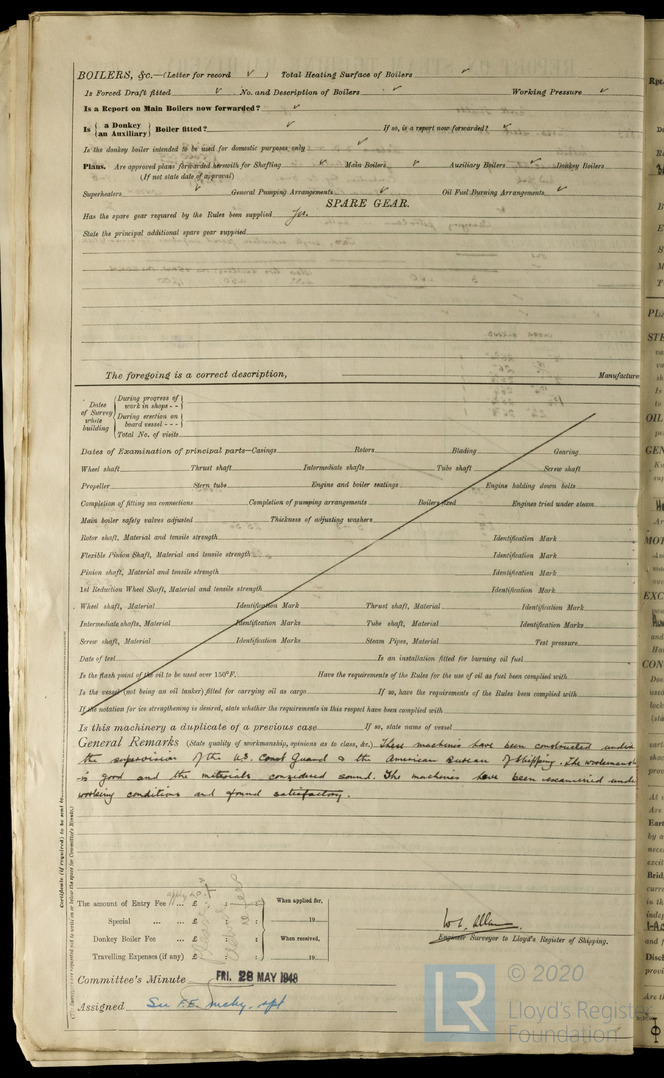 BOILERS, &c.—(Letter for record ✓ ) Total Heating Surface of Boilers ✓
Is Forced Draft fitted ✓ No. and Description of Boilers ✓ Working Pressure ✓
Is a Report on Main Boilers now forwarded? ✓
Is { a Donkey / an Auxiliary } Boiler fitted? ✓ If so, is a report now forwarded? ✓
Is the donkey boiler intended to be used for domestic purposes only
Plans. Are approved plans forwarded herewith for Shafting ✓ Main Boilers ✓ Auxiliary Boilers ✓ Donkey Boilers
(If not state date of approval)
Superheaters ✓ General Pumping Arrangements ✓ Oil Fuel Burning Arrangements ✓
SPARE GEAR.
Has the spare gear required by the Rules been supplied Yes.
State the principal additional spare gear supplied
The foregoing is a correct description,
Manufacture
Dates of Survey while building
During progress of work in shops - -
During erection on board vessel - - -
Total No. of visits
Dates of Examination of principal parts—Casings Rotors Blading Gearing
Wheel shaft Thrust shaft Intermediate shafts Tube shaft Screw shaft
Propeller Stern tube Engine and boiler seatings Engine holding down bolts
Completion of fitting sea connections Completion of pumping arrangements Boilers fixed Engines tried under steam
Main boiler safety valves adjusted Thickness of adjusting washers
Rotor shaft, Material and tensile strength Identification Mark
Flexible Pinion Shaft, Material and tensile strength Identification Mark
Pinion shaft, Material and tensile strength Identification Mark
1st Reduction Wheel Shaft, Material and tensile strength Identification Mark
Wheel shaft, Material Identification Mark Thrust shaft, Material Identification Mark
Intermediate shafts, Material Identification Marks Tube shaft, Material Identification Marks
Screw shaft, Material Identification Marks Steam Pipes, Material Test pressure
Date of test Is an installation fitted for burning oil fuel
Is the flash point of the oil to be used over 150°F. Have the requirements of the Rules for the use of oil as fuel been complied with
Is the vessel (not being an oil tanker) fitted for carrying oil as cargo If so, have the requirements of the Rules been complied with
If the notation for ice strengthening is desired, state whether the requirements in this respect have been complied with
Is this machinery a duplicate of a previous case If so, state name of vessel
General Remarks (State quality of workmanship, opinions as to class, &c.) These machines have been constructed under
the supervision of the U.S. Coast Guard & the American Bureau of Shipping. The workmansh
is good and the materials considered sound. The machines have been examined unde
working conditions and found satisfactory.
The amount of Entry Fee ... £ : : When applied for,
Special ... ... £ : : 19
Donkey Boiler Fee ... £ : : When received,
Travelling Expenses (if any) £ : : 19
Engineer Surveyor to Lloyd's Register of Shipping.
Committee's Minute FRI. 28 MAY 1948
Assigned See F.E. mchy. rpt
© 2020
LR
Lloyd's Register
Foundation